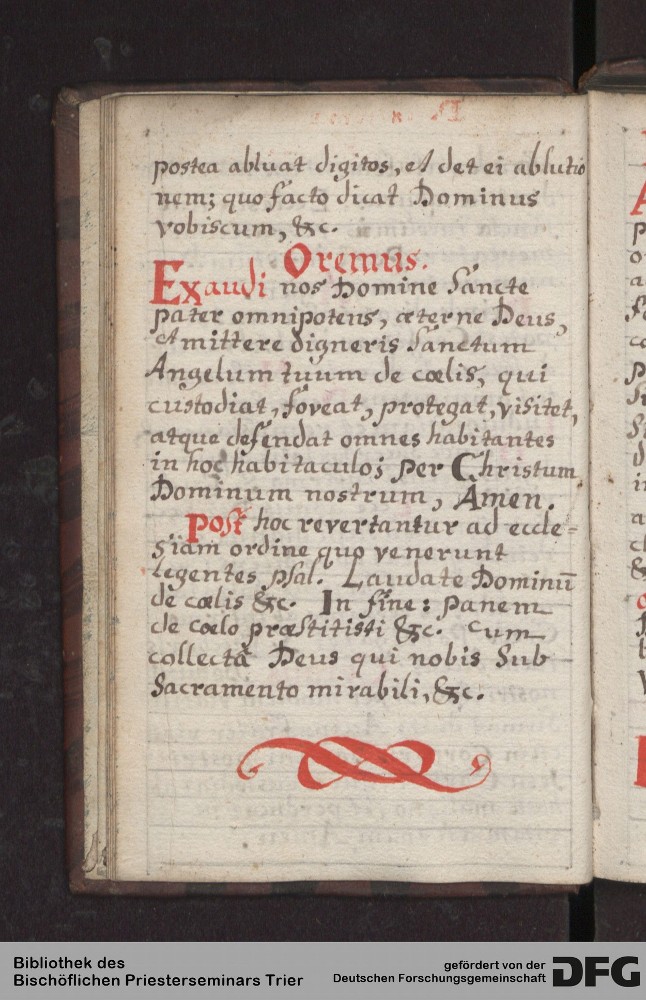 postea abluat digitos, et det ei ablutio
nem; quo facto dicat Dominus
vobiscum, &c.
Oremus.
Exaudi nos Domine Sancte
pater omnipotens, æterne Deus,
et mittere digneris Sanctum
Angelum tuum de cœlis, qui
custodiat, foveat, protegat, visitet,
atque defendat omnes habitantes
in hoc habitaculo; per Christum
Dominum nostrum, Amen.
Post hoc revertantur ad eccle=
siam ordine quo venerunt
legentes psal. Laudate Dominū
de cœlis &c. In fine: panem
de cœlo præstitisti &c. cum
collectâ Deus qui nobis Sub
Sacramento mirabili, &c.
Bibliothek des
Bischöflichen Priesterseminars Trier
gefördert von der
Deutschen Forschungsgemeinschaft
DFG